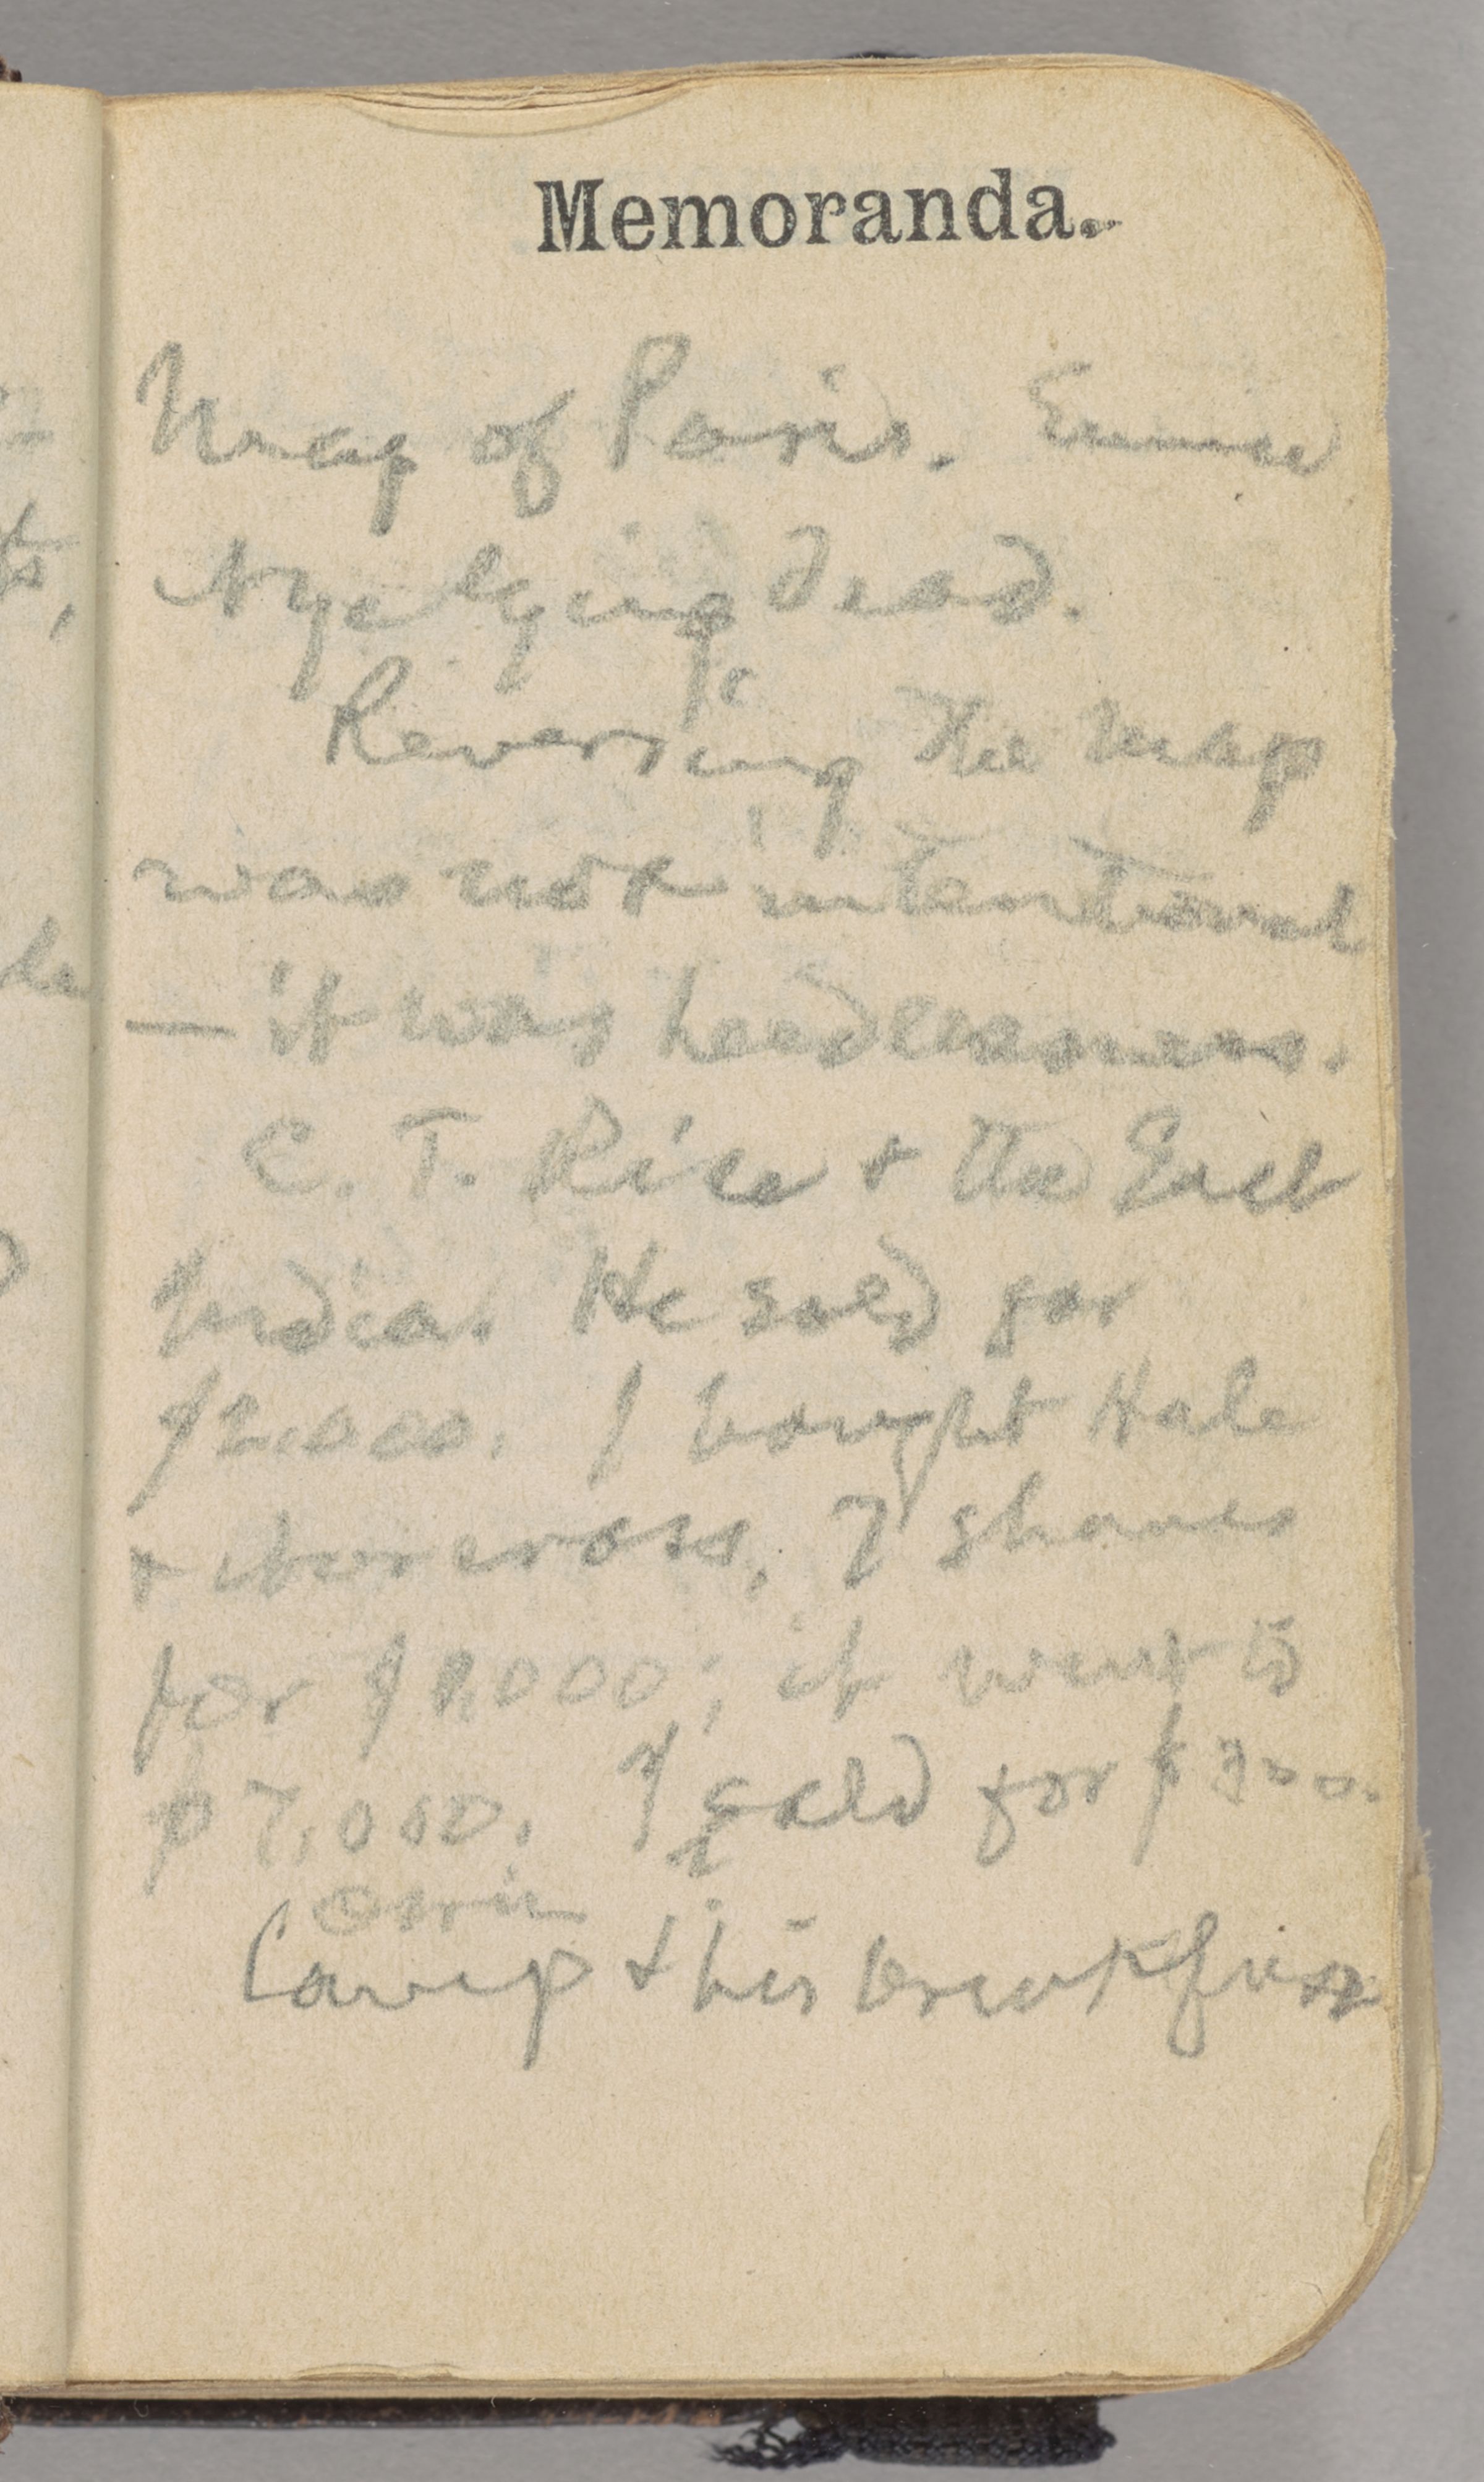 Memoranda.
Map of Paris. Emma
Nye lying dead.
Reversing the map
was not intentional
— it was heedlessness.
C. T. Rice & the East
India. He sold for
$2,000. I bought Hale
& Norcross, 7 shares
for $1,000; it went to
$7,000. I sold for $300.
Camp & his breakfast